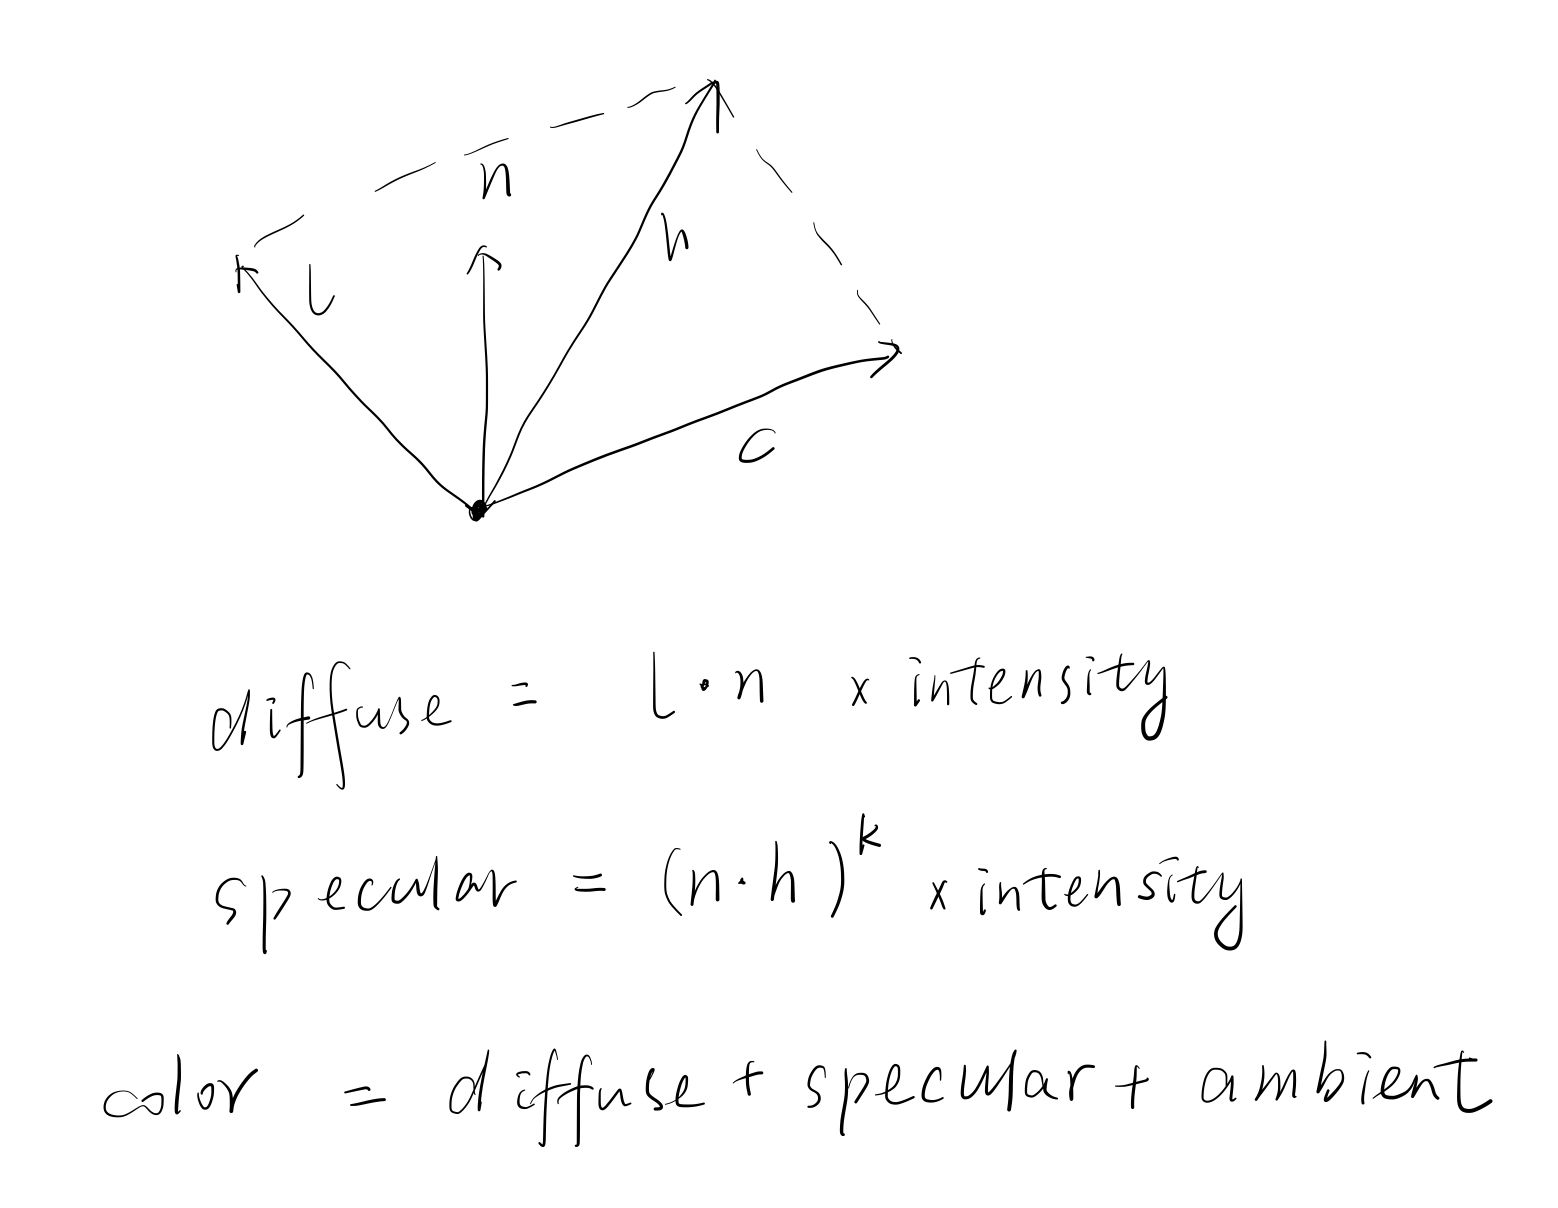 n
h
l
c
diffuse = l · n x intensity
specular = (n · h)^k x intensity
color = diffuse + specular + ambient